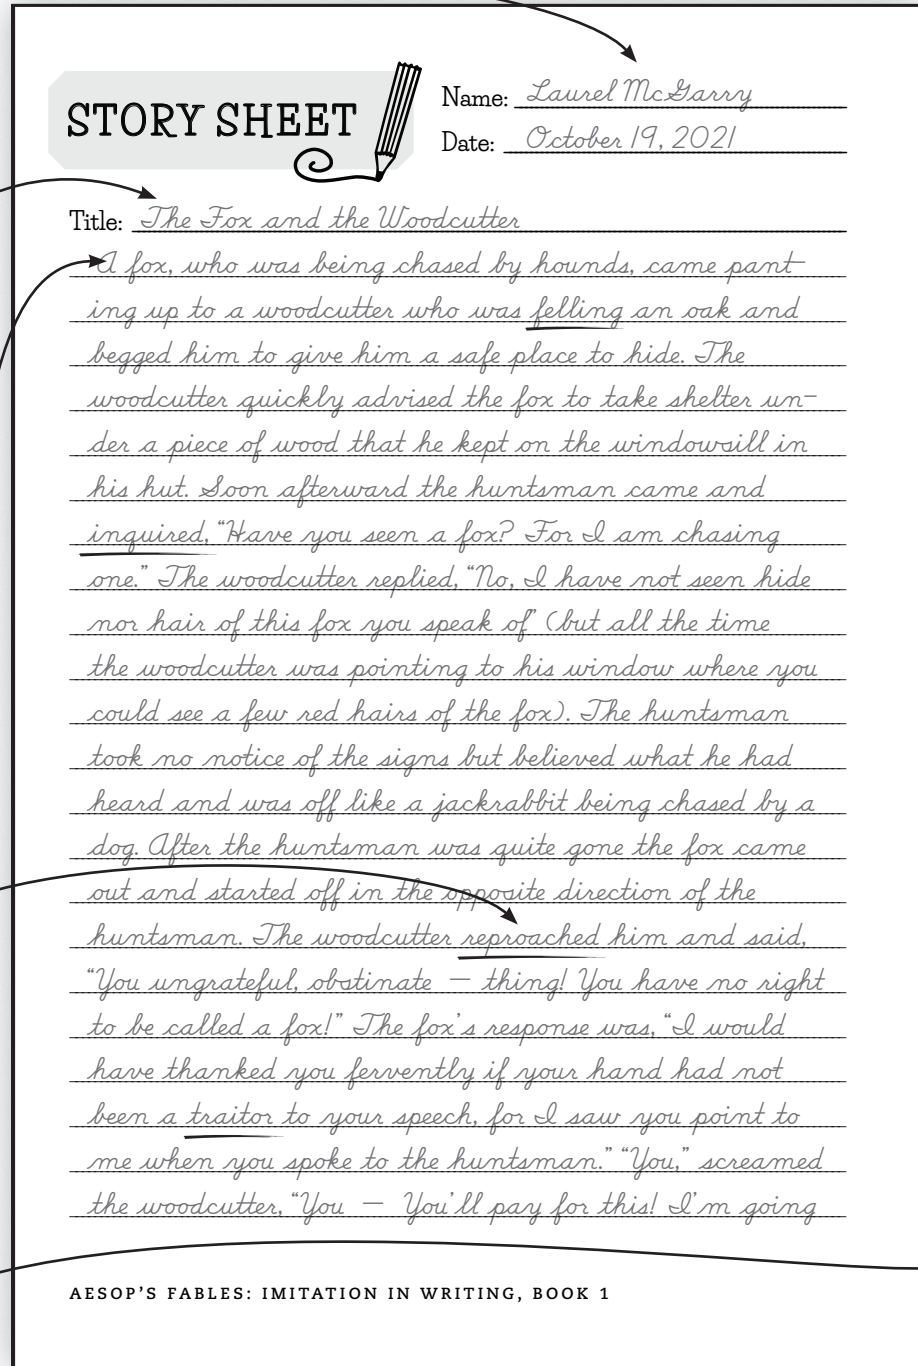 STORY SHEET
Name: Laurel McGarry
Date: October 19, 2021
Title: The Fox and the Woodcutter
A fox, who was being chased by hounds, came pant-
ing up to a woodcutter who was felling an oak and
begged him to give him a safe place to hide. The
woodcutter quickly advised the fox to take shelter un-
der a piece of wood that he kept on the windowsill in
his hut. Soon afterward the huntsman came and
inquired, “Have you seen a fox? For I am chasing
one.” The woodcutter replied, “No, I have not seen hide
nor hair of this fox you speak of” (but all the time
the woodcutter was pointing to his window where you
could see a few red hairs of the fox). The huntsman
took no notice of the signs but believed what he had
heard and was off like a jackrabbit being chased by a
dog. After the huntsman was quite gone the fox came
out and started off in the opposite direction of the
huntsman. The woodcutter reproached him and said,
“You ungrateful, obstinate — thing! You have no right
to be called a fox!” The fox’s response was, “I would
have thanked you fervently if your hand had not
been a traitor to your speech, for I saw you point to
me when you spoke to the huntsman.” “You,” screamed
the woodcutter, “You — You’ll pay for this! I’m going
AESOP’S FABLES: IMITATION IN WRITING, BOOK 1